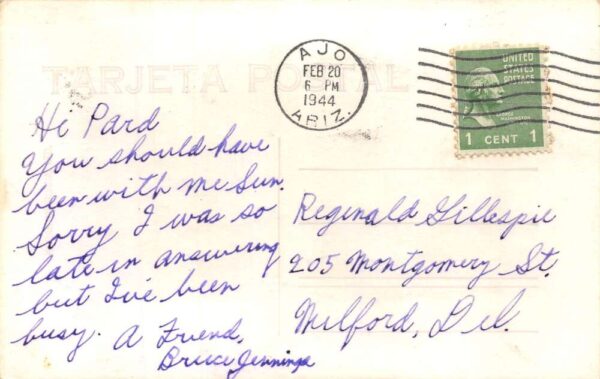 TARJETA POSTAL
AJO
FEB 20
6 PM
1944
ARIZ.
UNITED
STATES
POSTAGE
GEORGE
WASHINGTON
1 CENT 1
Hi Pard
You should have
been with me Sun.
Sorry I was so
late in answering
but I've been
busy. A Friend,
Bruce Jennings
Reginald Gillespie
205 Montgomery St.
Milford, Del.